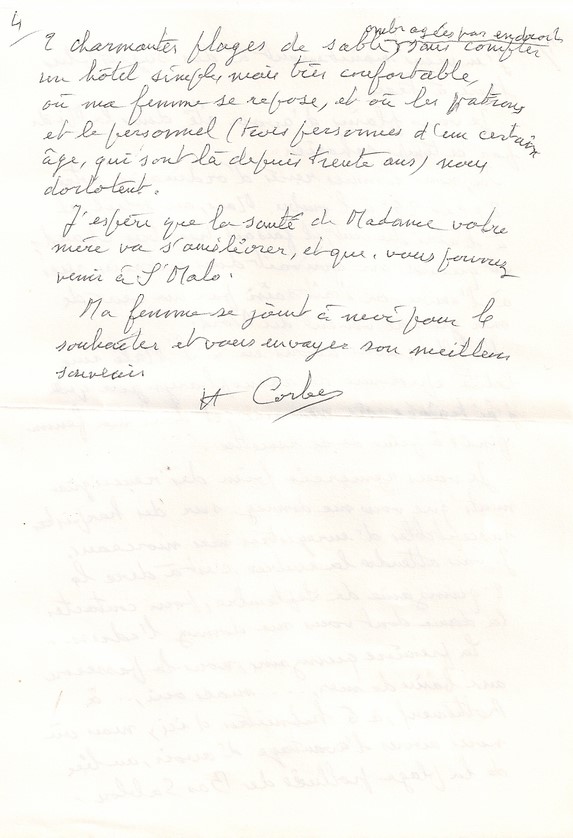 4/
ombragées par endroits
2 charmantes plages de sable, sans compter
un hôtel simple, mais très confortable,
où ma femme se repose, et où les patrons
et le personnel (trois personnes d'un certain
âge, qui sont là depuis trente ans) nous
dorlotent.
J'espère que la santé de Madame votre
mère va s'améliorer, et que vous pourrez
venir à St Malo.
Ma femme se joint à moi pour le
souhaiter et vous envoyer son meilleur
souvenir
H Corbes